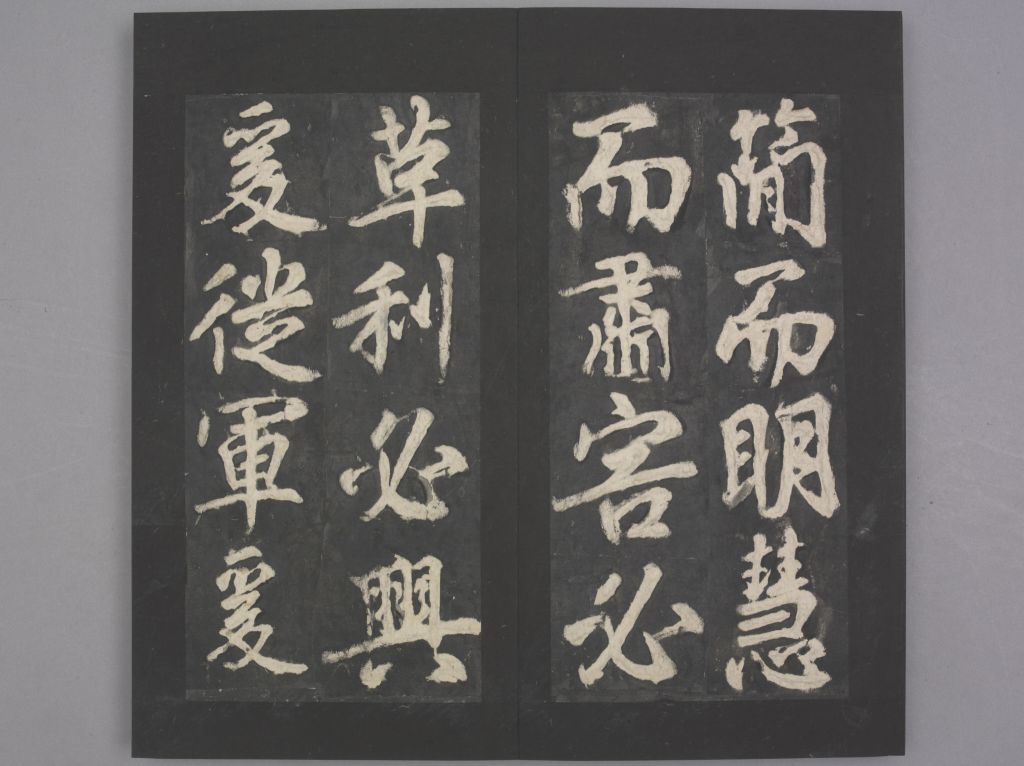 簡而明慧
而肅害必
草利必興
爰從軍爰